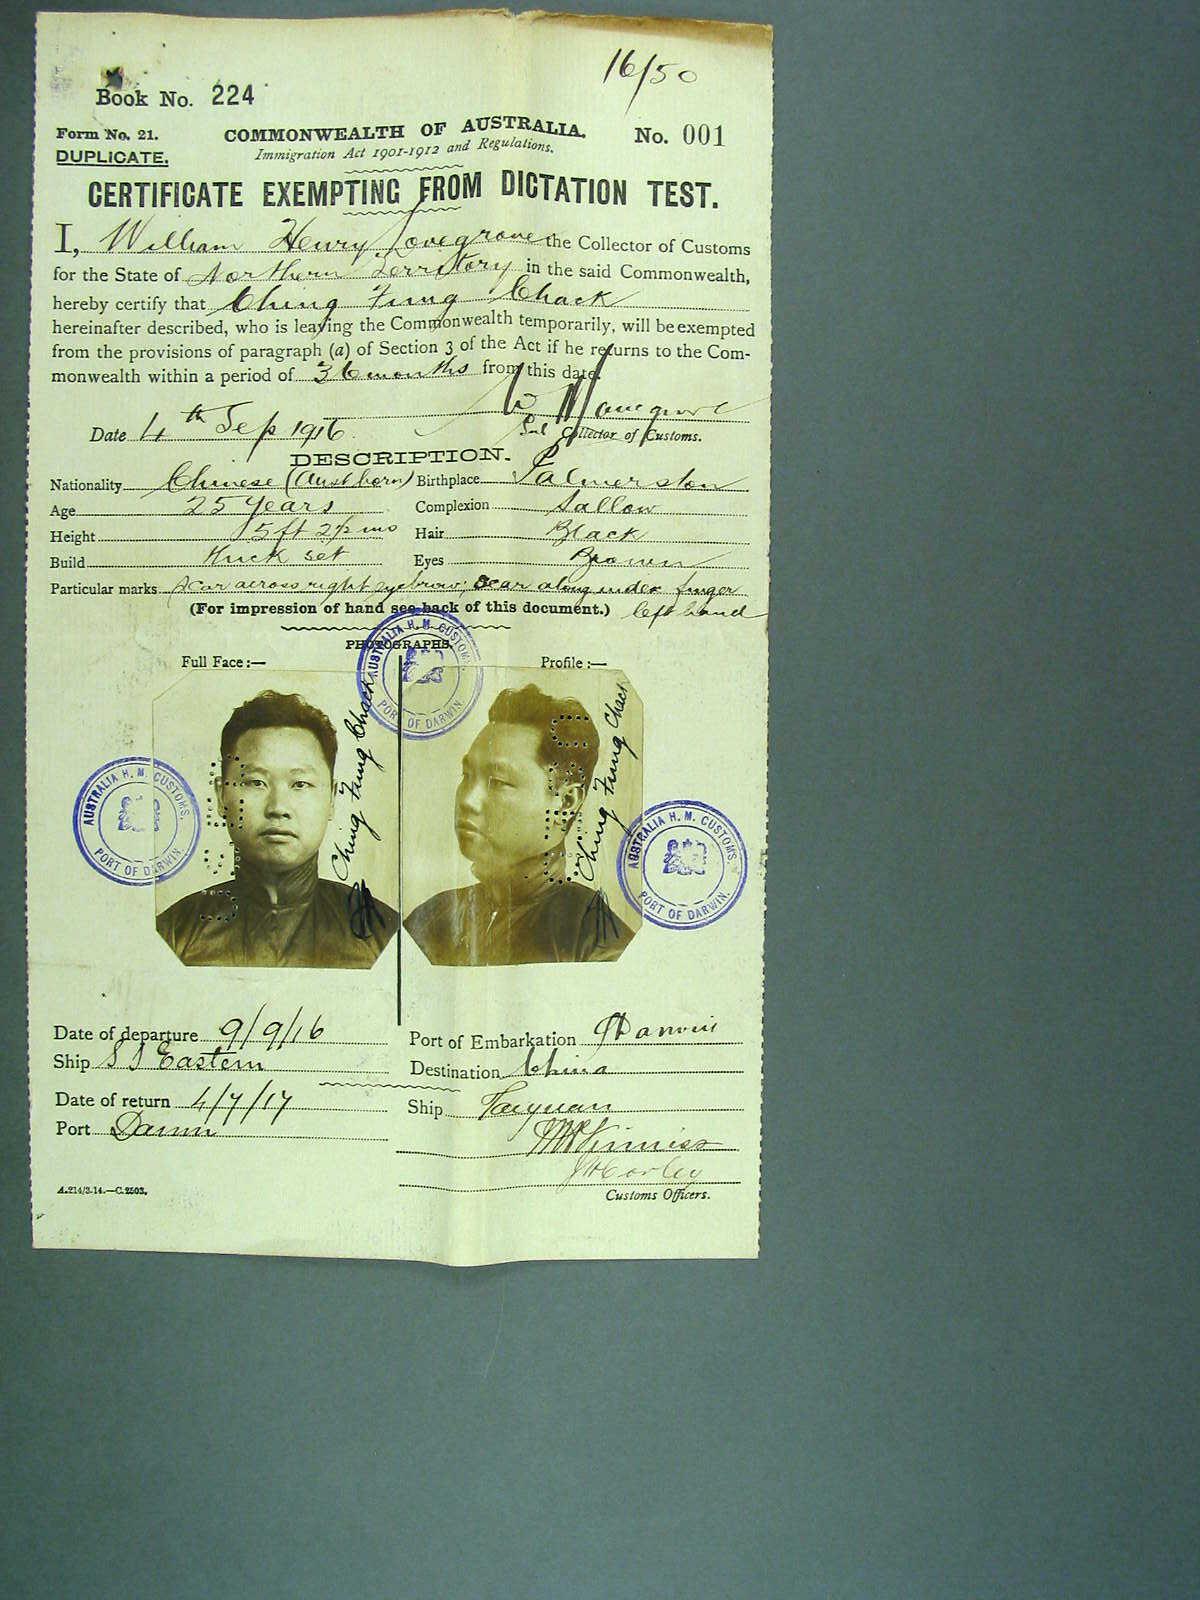 16/50
Book No. 224
Form No. 21. COMMONWEALTH OF AUSTRALIA. No. 001
DUPLICATE. Immigration Act 1901-1912 and Regulations.
CERTIFICATE EXEMPTING FROM DICTATION TEST.
I, William Henry Lovegrove the Collector of Customs
for the State of Northern Territory in the said Commonwealth,
hereby certify that Ching Fung Chack
hereinafter described, who is leaving the Commonwealth temporarily, will be exempted
from the provisions of paragraph (a) of Section 3 of the Act if he returns to the Com-
monwealth within a period of 36 months from this date.
W H Lovegrove
Date 4th Sep 1916. Sub Collector of Customs.
DESCRIPTION.
Nationality Chinese (Aust born) Birthplace Palmerston
Age 25 years Complexion Sallow
Height 5ft 2½ ins Hair Black
Build thick set Eyes Brown
Particular marks Scar across right eyebrow; Scar along index finger
(For impression of hand see back of this document.) left hand
PHOTOGRAPHS.
Full Face:— Profile:—
AUSTRALIA H. M. CUSTOMS. PORT OF DARWIN.
Ching Fung Chack
Ching Fung Chack
AUSTRALIA H. M. CUSTOMS. PORT OF DARWIN.
AUSTRALIA H. M. CUSTOMS. PORT OF DARWIN.
Date of departure 9/9/16 Port of Embarkation Darwin
Ship SS Eastern Destination China
Date of return 4/7/17 Ship Taiyuan
Port Darwin
A.214/3.14.—C.2503. Customs Officers.